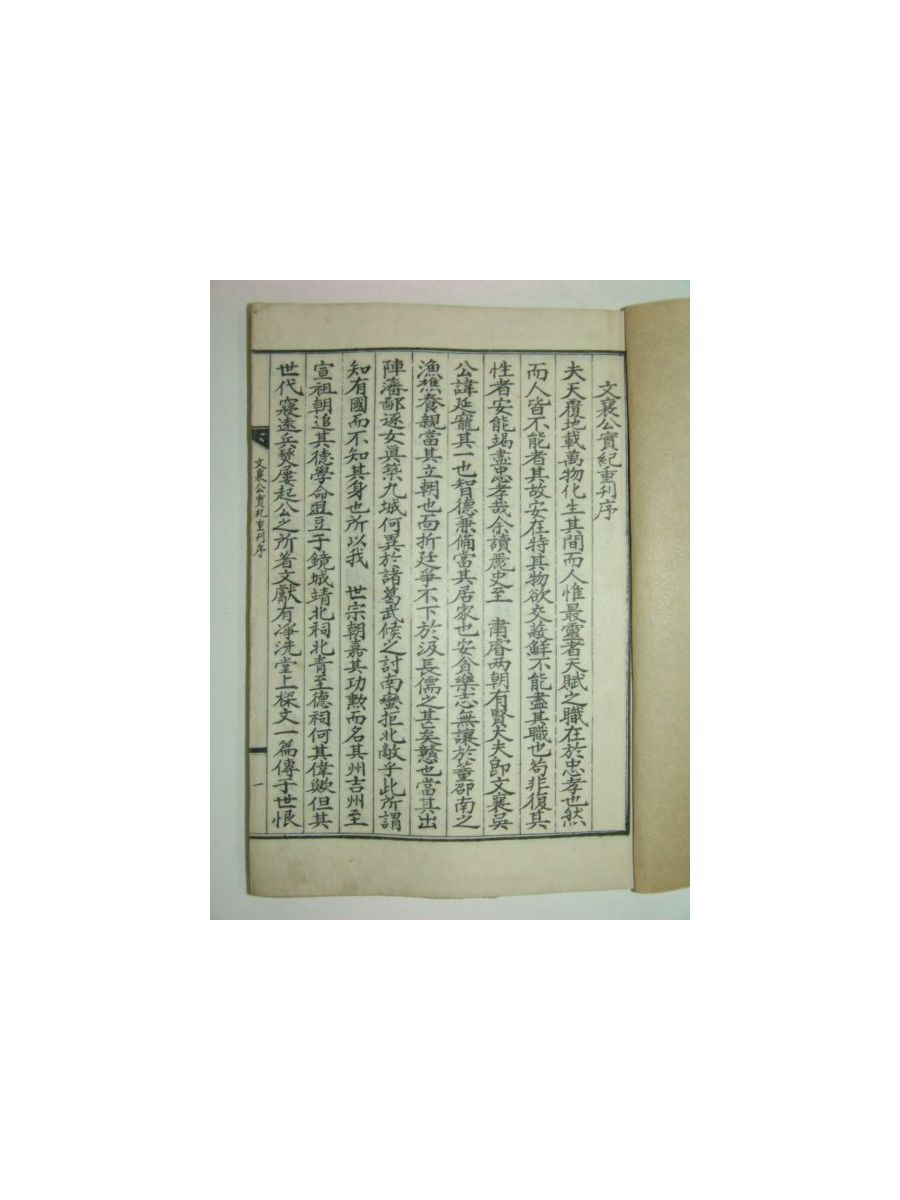 文襄公實紀重刊序
夫天覆地載萬物化生其間而人惟最靈者天賦之職在於忠孝也然
而人皆不能者其故安在特其物欲交蔽鮮不能盡其職也苟非復其
性者安能竭盡忠孝哉余讀麗史至 肅睿两朝有賢大夫即文襄吳
公諱延寵其一也智德兼備當其居家也安貧樂志無讓於董邵南之
漁樵養親當其立朝也面折廷爭不下於汲長孺之甚矣戇也當其出
陣瀋鄙逐女眞築九城何異於諸葛武候之討南蠻拒北敵乎此所謂
知有國而不知其身也所以我 世宗朝嘉其功勲而名其州吉州至
宣祖朝追其德學命俎豆于鏡城靖北祠北青至德祠何其偉歟但其
世代寢遠兵燹屢起公之所著文獻有凈洗堂上樑文一篇傳于世恨
文襄公實紀重刊序
一